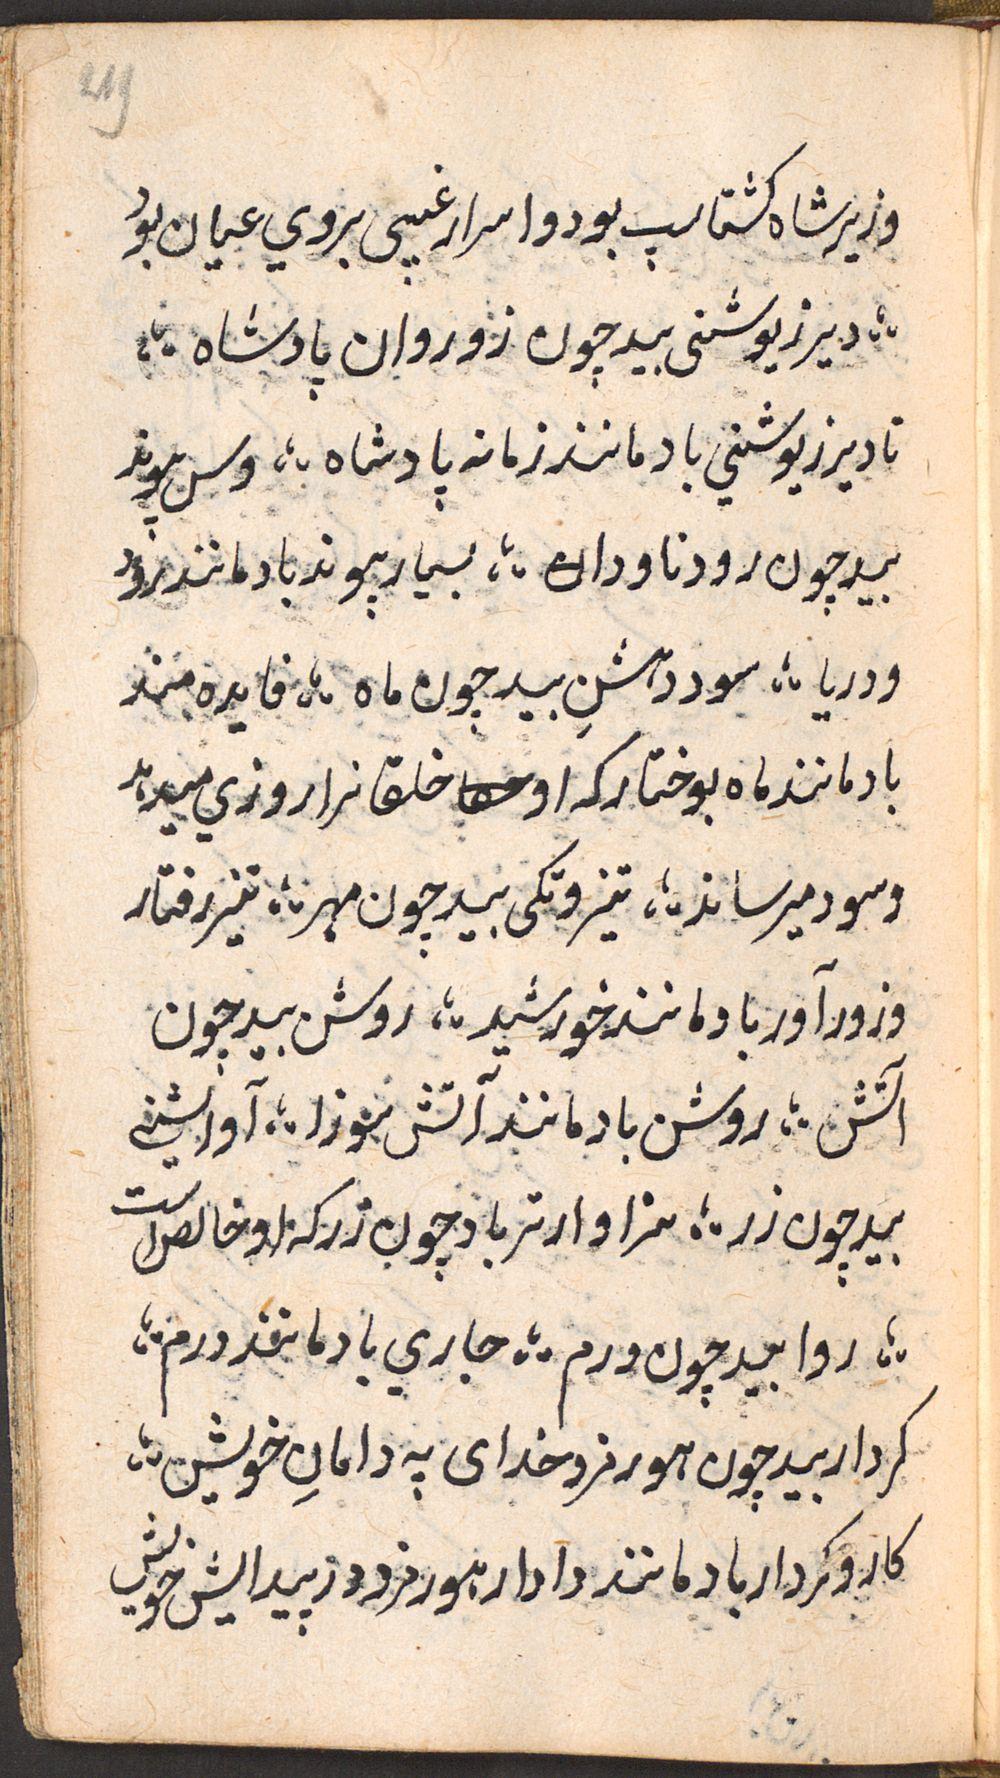 219
وزیر شاه کشتاسپ بود و اسرار غیبی بروي عیان بود
؞ دیر زیوشنی بید چون زوروان پادشاه ؞
تا دیر زیوشني باد مانند زمانه پادشاه ؞ وس پیوند
بید چون رود ناودان ؞ بسیار پیوند باد مانند رود
و دریا ؞ سود دهشنِ بید چون ماه ؞ فایده مند
باد مانند ماه بوختار که او خلقانرا روزي میدهد
وسود میرساند ؞ تیز وتکی بید چون مهر ؞ تیز رفتار
وزور آور باد مانند خورشید ؞ روشن بید چون
آتش ؞ روشن باد مانند آتش سوزا ؞
بید چون زر ؞ سزاوارتر باد چون زر که او خالص است
؞ روا بید چون درم ؞ جاري باد مانند درم ؞
کردار بید چون هورمزد خدای په دامانِ خویش ؞
کار وکردار باد مانند دادار هورمزد در پیدایش خویش